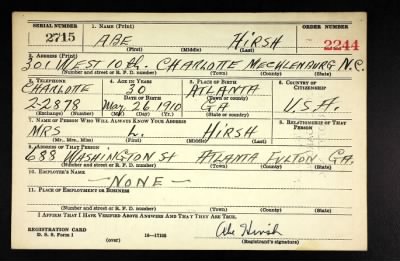 SERIAL NUMBER 1. NAME (Print) ORDER NUMBER
2715 ABE HIRSH 2244
(First) (Middle) (Last)
2. ADDRESS (Print)
301 WEST 10th. CHARLOTTE MECKLENBURG N.C.
(Number and street or R. F. D. number) (Town) (County) (State)
3. TELEPHONE 4. AGE IN YEARS 5. PLACE OF BIRTH 6. COUNTRY OF CITIZENSHIP
CHARLOTTE 30 ATLANTA
DATE OF BIRTH (Town or county)
2-2878 May 26 1910 GA U.S.A.
(Exchange) (Number) (Mo.) (Day) (Yr.) (State or country)
7. NAME OF PERSON WHO WILL ALWAYS KNOW YOUR ADDRESS 8. RELATIONSHIP OF THAT PERSON
MRS L. HIRSH
(Mr., Mrs., Miss) (First) (Middle) (Last)
9. ADDRESS OF THAT PERSON
688 WASHINGTON St ATLANTA FULTON GA.
(Number and street or R. F. D. number) (Town) (County) (State)
10. EMPLOYER'S NAME
—NONE—
11. PLACE OF EMPLOYMENT OR BUSINESS
(Number and street or R. F. D. number) (Town) (County) (State)
I AFFIRM THAT I HAVE VERIFIED ABOVE ANSWERS AND THAT THEY ARE TRUE.
REGISTRATION CARD Abe Hirsh
D. S. S. Form 1 (over) 16—17105 (Registrant's signature)